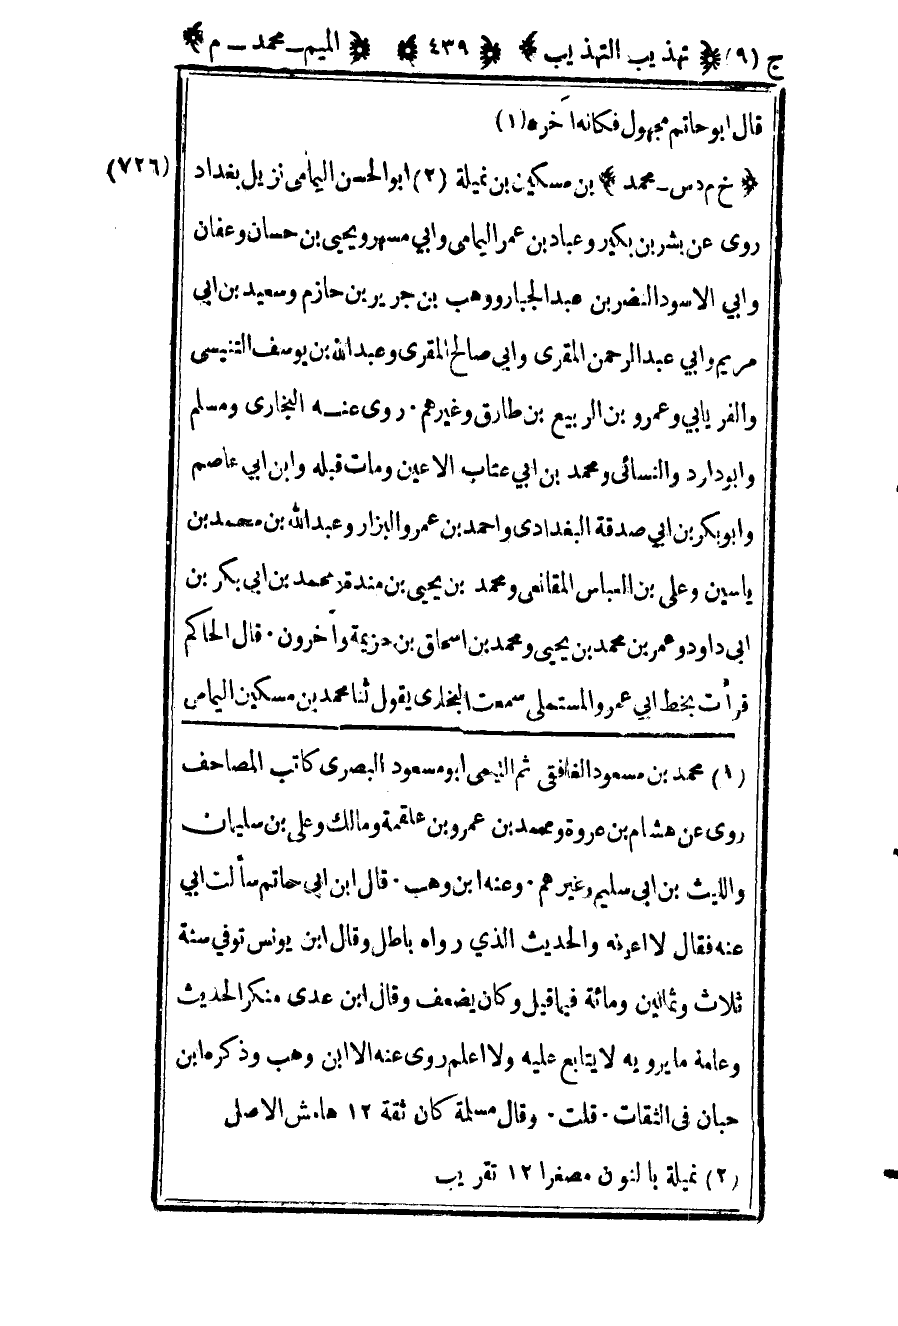 ج (٩) ﴿ تهذيب التهذيب ﴾ ﴿ ٤٣٩ ﴾ ﴿ الميم-محمد-م ﴾
قال ابو حاتم مجهول فكانه آخره (١)
(٧٢٦) ﴿ خ م د س-محمد ﴾ بن مسكين بن نميلة (٢) ابو الحسن اليمامى نزيل بغداد
روى عن بشر بن بكير وعباد بن عمر اليمامى وابي مسهر ويحيى بن حسان وعفان
وابي الاسود النضر بن عبد الجبار ووهب بن جرير بن حازم وسعيد بن ابي
مريم وابي عبد الرحمن المقرى وابي صالح المقرى وعبد الله بن يوسف التنيسى
والفريابي وعمرو بن الربيع بن طارق وغيرهم ٠ روى عنه البخارى ومسلم
وابودارد والنسائى ومحمد بن ابي عتاب الاعين ومات قبله وابن ابي عاصم
وابوبكر بن ابي صدقة البغدادى واحمد بن عمرو البزار وعبد الله بن محمد بن
ياسين وعلى بن العباس المقانعى ومحمد بن يحيى بن مندة ومحمد بن ابي بكر بن
ابى داود وعمر بن محمد بن يحيى ومحمد بن اسحاق بن خزيمة وآخرون ٠ قال الحاكم
قرأت بخط ابي عمرو المستملى سمعت البخارى يقول ثنا محمد بن مسكين اليمامى
(١) محمد بن مسعود الغافقى ثم التيمى ابو مسعود البصرى كاتب المصاحف
روى عن هشام بن عروة ومحمد بن عمرو بن علقمة ومالك وعلى بن سليمان
والليث بن ابى سليم وغيرهم ٠ وعنه ابن وهب ٠ قال ابن ابي حاتم سألت ابي
عنه فقال لا اعرفه والحديث الذي رواه باطل وقال ابن يونس توفي سنة
ثلاث وثمانين ومائة فيما قيل وكان يضعف وقال ابن عدى منكر الحديث
وعامة ما يرويه لا يتابع عليه ولا اعلم روى عنه الا ابن وهب وذكره ابن
حبان فى الثقات ٠ قلت ٠ وقال مسلمة كان ثقة ١٢ هامش الاصلى
(٢) نميلة بالنون مصغرا ١٢ تقريب